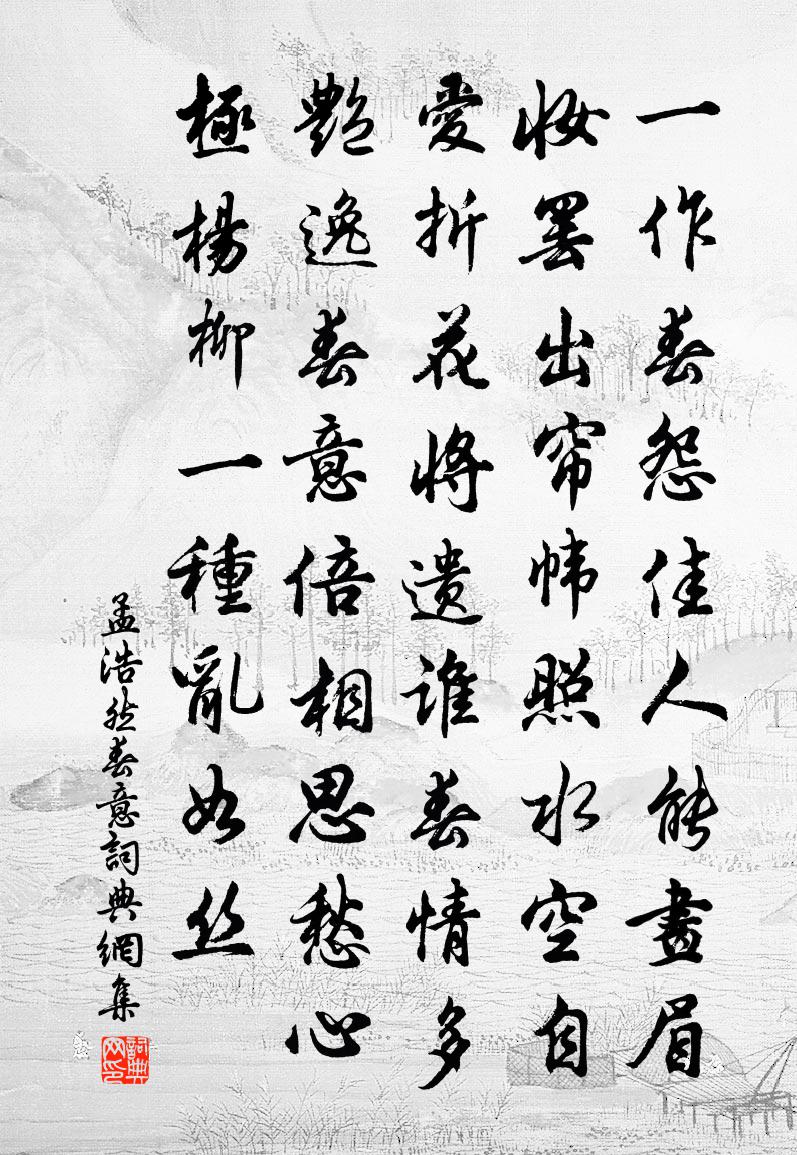 一作春怨佳人能畫眉
妝罷出帘幃照水空自
愛折花將遺誰春情多
艷逸春意倍相思愁心
極楊柳一種亂如絲
孟浩然春意詞典網集
詞典网印